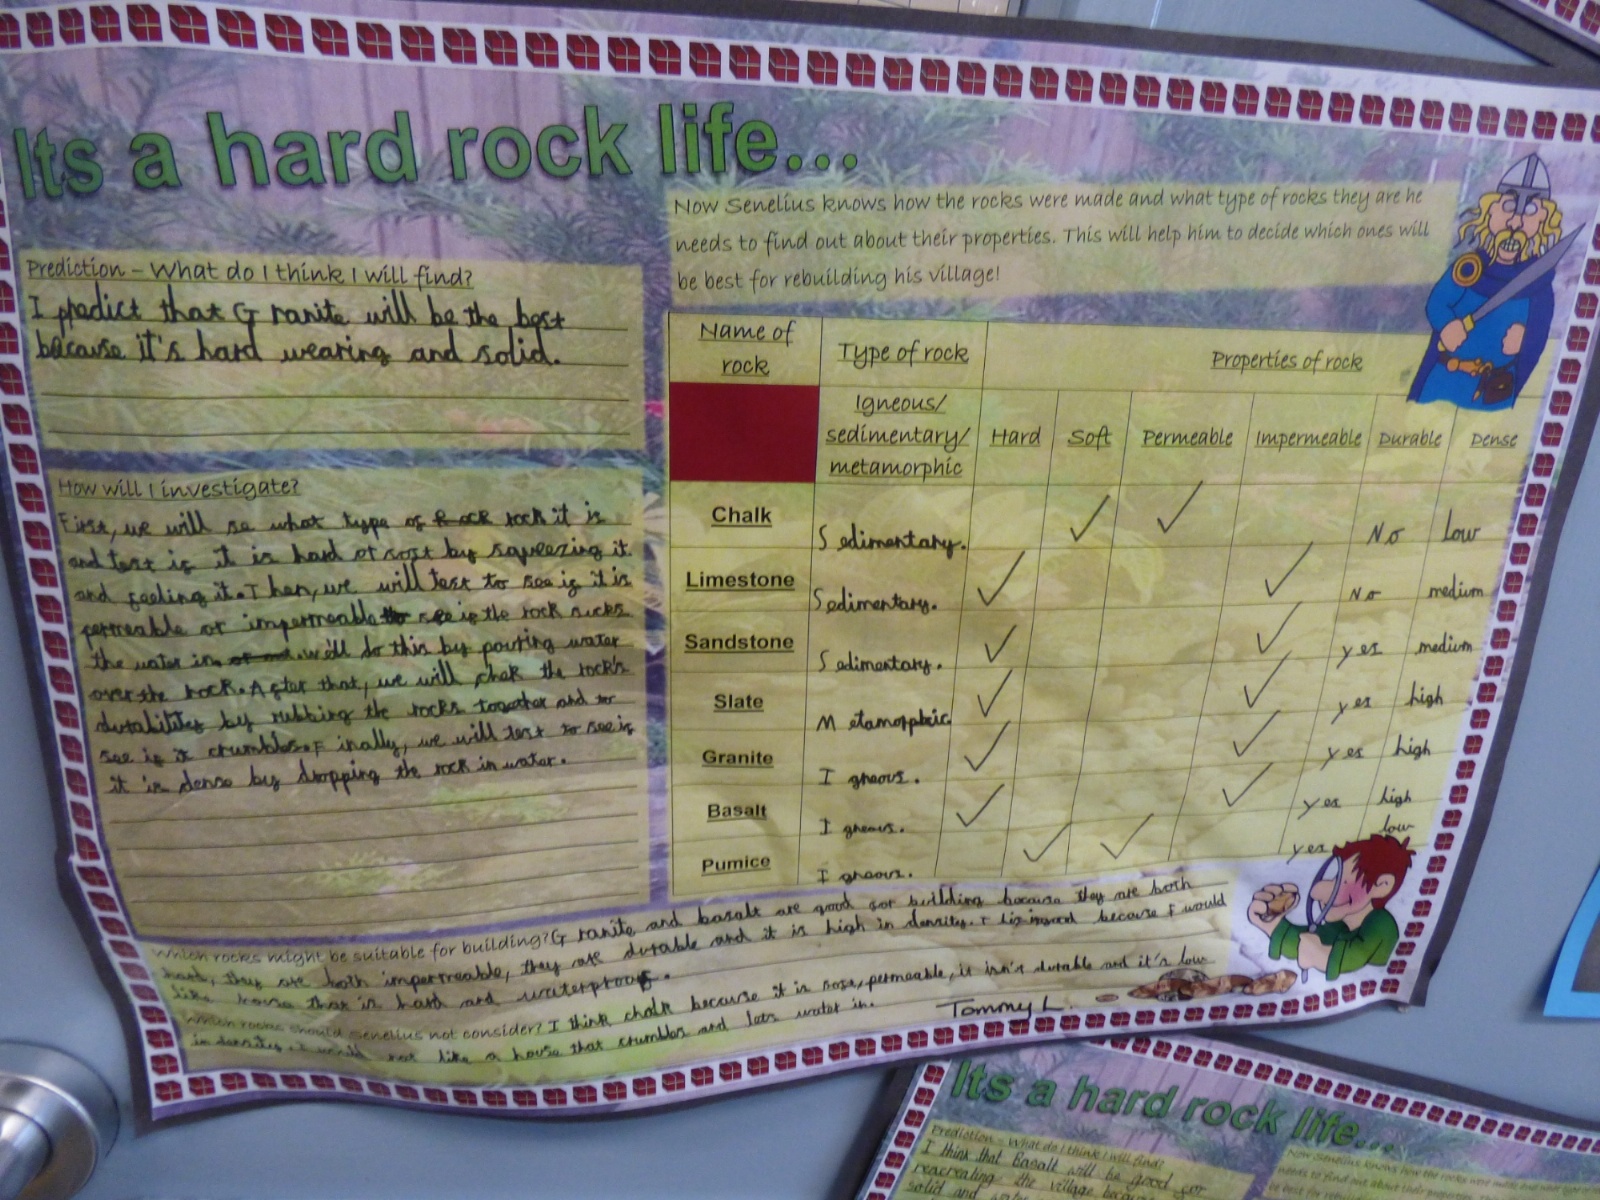 Its a hard rock life...
Prediction – What do I think I will find?
I predict that Granite will be the best
because it's hard wearing and solid.
How will I investigate?
First, we will se what type of rock it is
and test if it is hard or soft by squeezing it
and feeling it. Then, we will test to see if it is
permeable or impermeable see if the rock sucks
the water in. will do this by pouring water
over the rock. After that, we will chek the rock's
durabilities by rubbing the rocks together and to
see if it crumbles. Finally, we will test to see if
it is dense by dropping the rock in water.
Now Senelius knows how the rocks were made and what type of rocks they are he
needs to find out about their properties. This will help him to decide which ones will
be best for rebuilding his village!
Name of rock Type of rock Properties of rock
Igneous/ sedimentary/ metamorphic Hard Soft Permeable Impermeable Durable Dense
Chalk Sedimentary. ✓ ✓ No Low
Limestone Sedimentary. ✓ ✓ No medium
Sandstone Sedimentary. ✓ ✓ yes medium
Slate Metamorphic ✓ ✓ yes high
Granite Igneous. ✓ ✓ yes high
Basalt Igneous. ✓ ✓ yes high
Pumice Igneous. ✓ ✓ yes low
Which rocks might be suitable for building? Granite and basalt are good for building because they are both
hard, they are both impermeable, they are durable and it is high in density. I because I would
like house that is hard and waterproof.
Which rocks should Senelius not consider? I think chalk because it is soft, permeable, it isn't durable and it's low
in density. I would not like a house that crumbles and lets water in.
Tommy L.
Its a hard rock life...
Prediction – What do I think I will find?
I think that Basalt will be good for
recreating the village because
solid and
Now Senelius knows how the rocks were made and what type of
needs to find out about their properties.
be best for